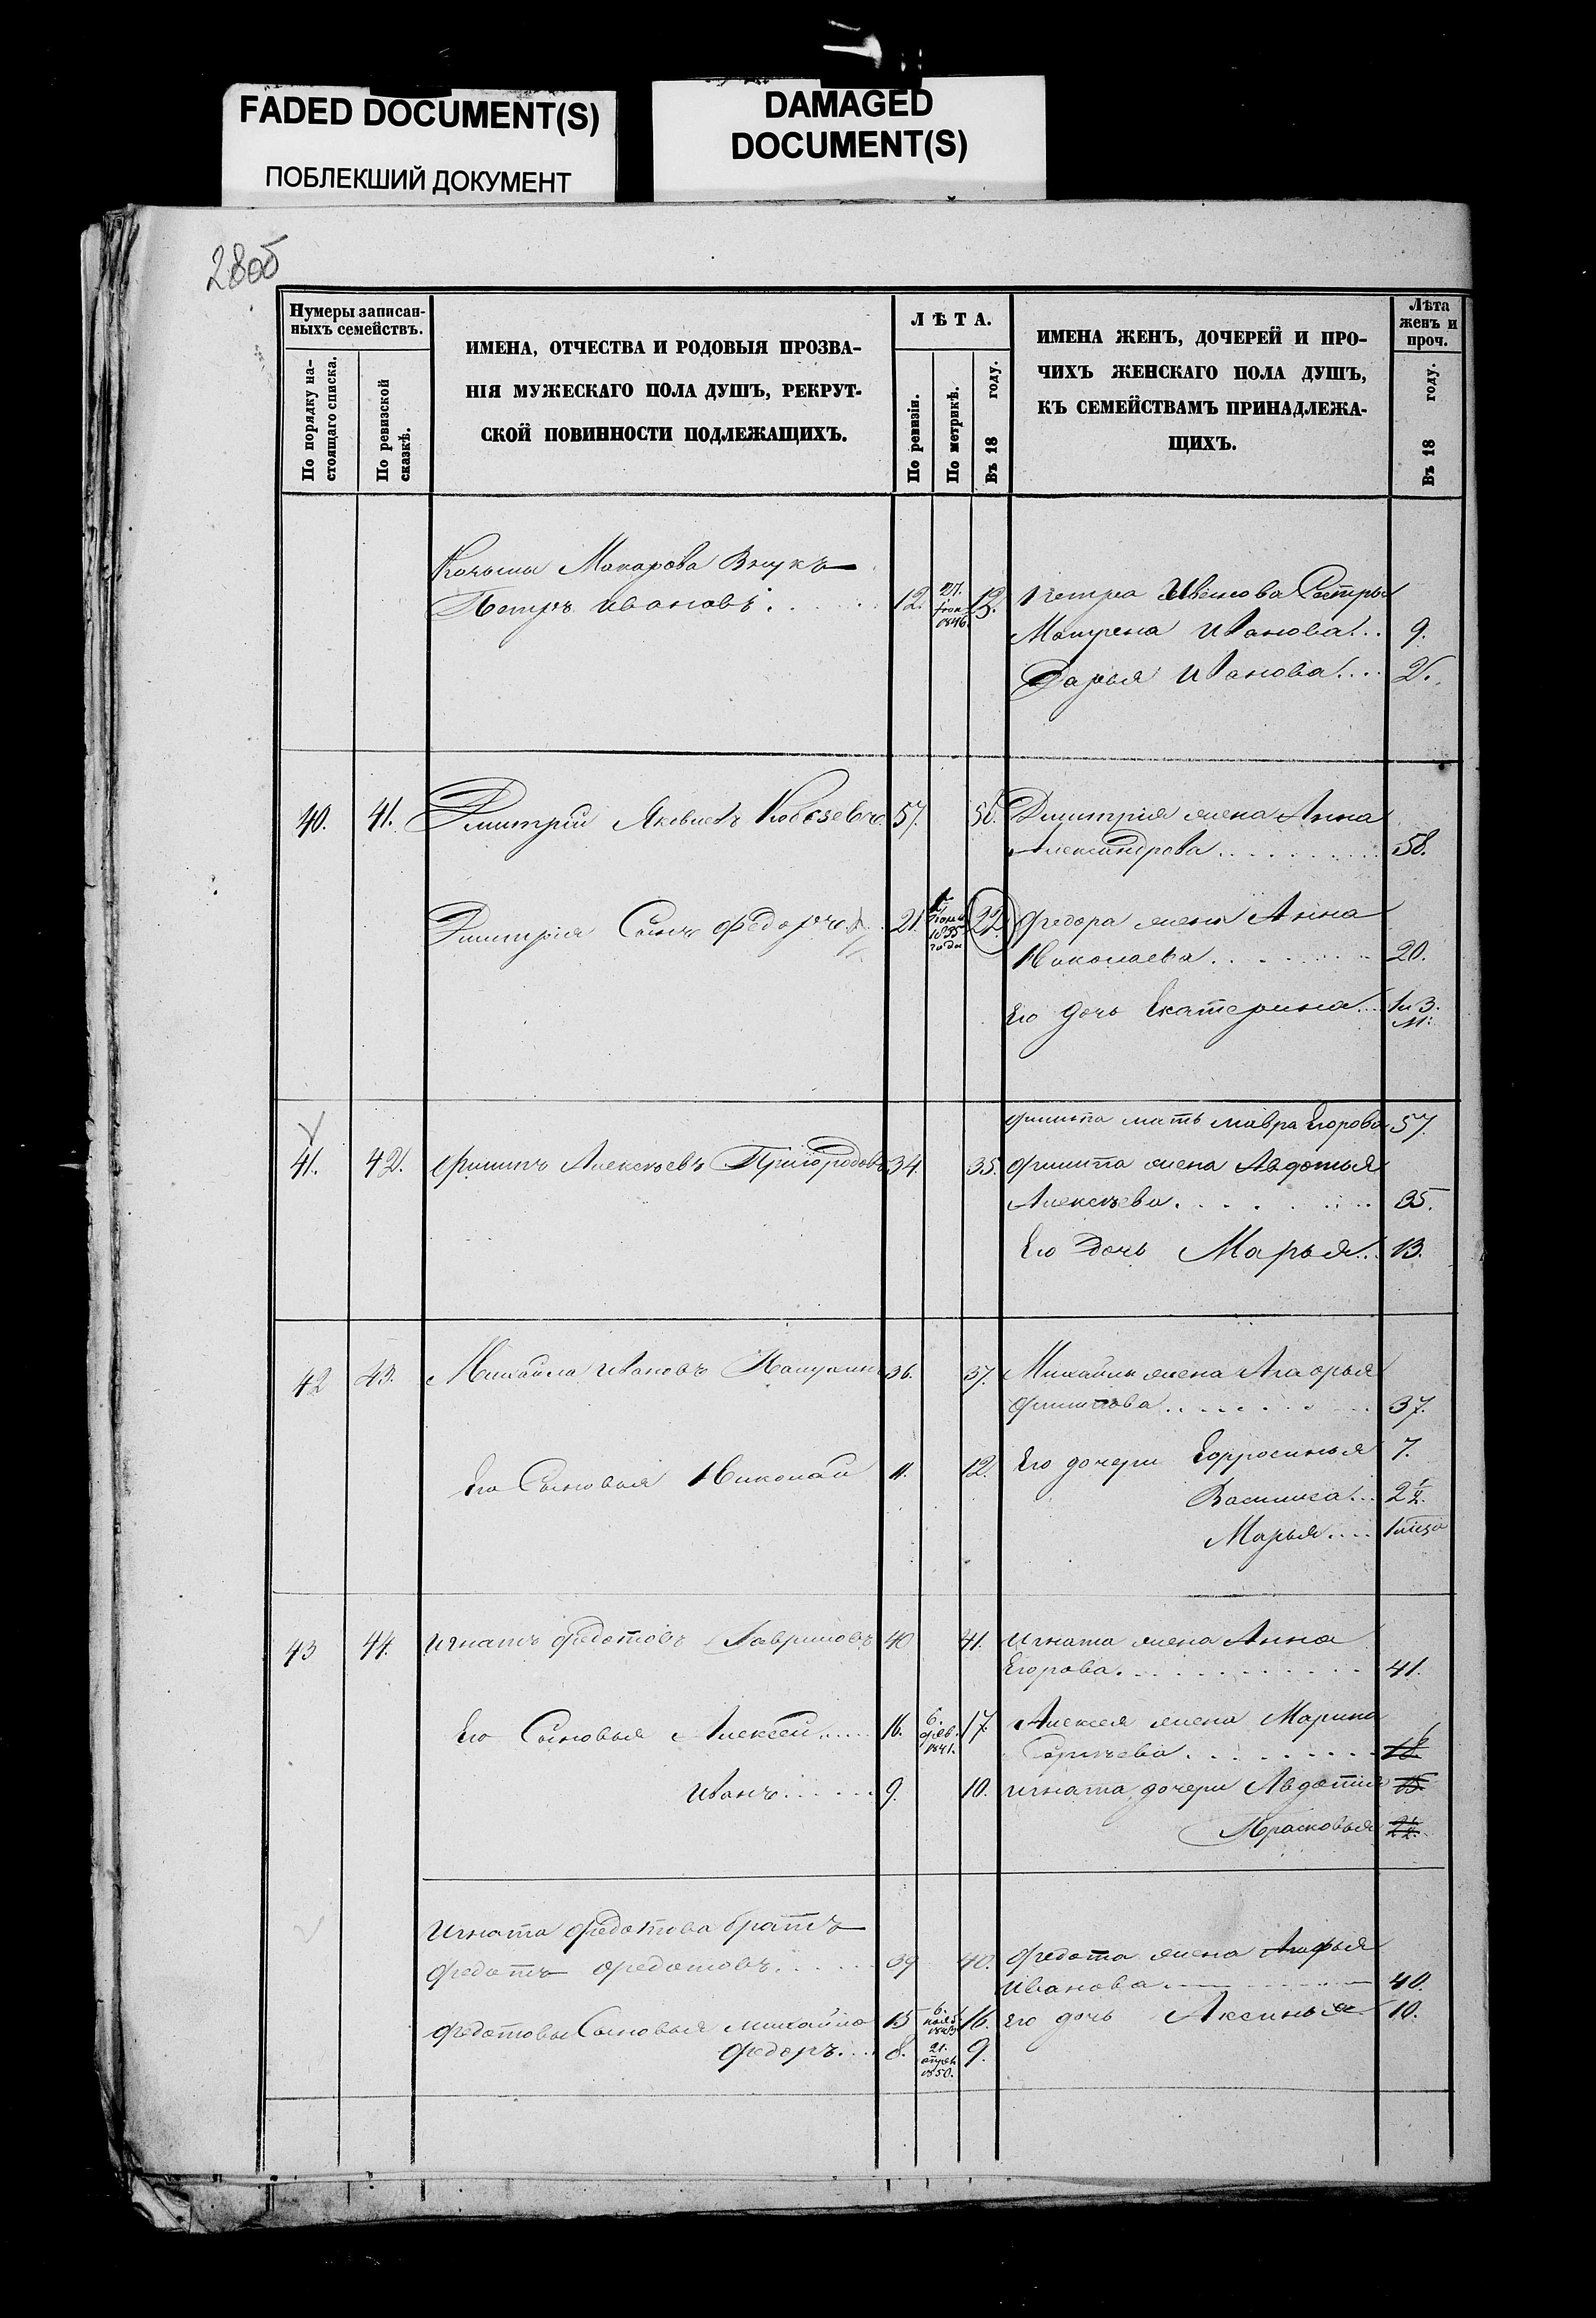 FADED DOCUMENT(S)
ПОБЛЕКШИЙ ДОКУМЕНТ
DAMAGED
DOCUMENT(S)
28об
Нумеры записан-
ныхъ семействъ.
По порядку на-
стоящаго списка.
По ревизской
сказкѣ.
ИМЕНА, ОТЧЕСТВА И РОДОВЫЯ ПРОЗВА-
НІЯ МУЖЕСКАГО ПОЛА ДУШЪ, РЕКРУТ-
СКОЙ ПОВИННОСТИ ПОДЛЕЖАЩИХЪ.
ЛѢТА.
По ревизіи.
По метрикѣ.
Въ 18 году.
ИМЕНА ЖЕНЪ, ДОЧЕРЕЙ И ПРО-
ЧИХЪ ЖЕНСКАГО ПОЛА ДУШЪ,
КЪ СЕМЕЙСТВАМЪ ПРИНАДЛЕЖА-
ЩИХЪ.
Лѣта
женъ и
проч.
Въ 18 году.
Макарова Внукъ
Петръ Ивановъ. 12. 1846. 12. Петра Иванова Сестры
Матрена Иванова... 9.
Дарья Иванова... 2.
40. 41. Дмитрий Яковлевъ 57. Дмитрія жена Анна
Александрова 58.
Дмитрія Сынъ Федоръ 21. 1835 года 22. Федора жена Анна
Николаева 20.
Его дочь Екатерина... 1 и 3. м:
Филипа мать Мавра Егорова 57.
41. 42. Филипъ Алексѣевъ Пригородовъ 34. 35. Филипа жена Авдотья
Алексѣева 35.
Его Дочь Марья.. 13.
42 43. Михайла Ивановъ 36. 37. Михайлы жена Агафья
Филипова 37.
Его Сыновья Николай 11. 12. Его дочери Ефросинья 7.
Василиса... 2 1/2.
Марья....
43 44. Игнатъ Федотовъ Гавриловъ 40 41. Игната жена Анна
Егорова 41.
Его Сыновья Алексей..... 16. 6. фев. 1841. 17. Алексея жена Марина
Сергѣева 18.
Иванъ 9. 10. Игната дочери Авдотья 15.
Прасковья
Игната Федотова братъ
Федотъ Федотовъ 39 40. Федота жена Агафья
Иванова 40.
Федотовы Сыновья Михайло 15 6. 16. Его дочь Аксинья 10.
Федоръ.... 8. 21. апрѣл 1850. 9.